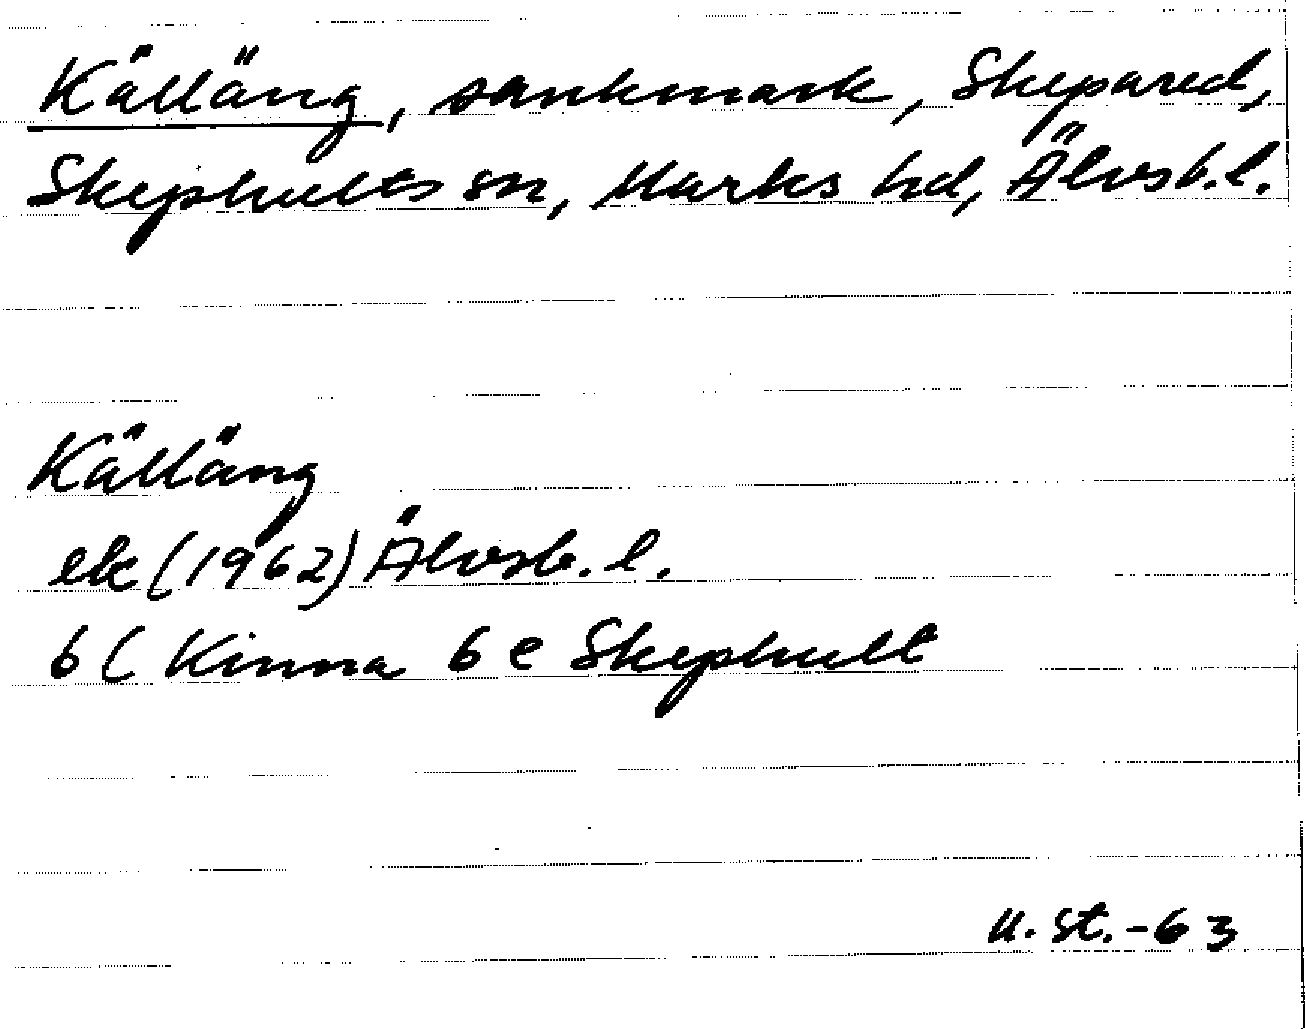 Källäng, sankmark, Skepared,
Skephults sn, Marks hd, Älvsb.l.
Källäng
ek (1962) Älvsb. l.
6 C Kinna 6 e Skephult
U. St. -63